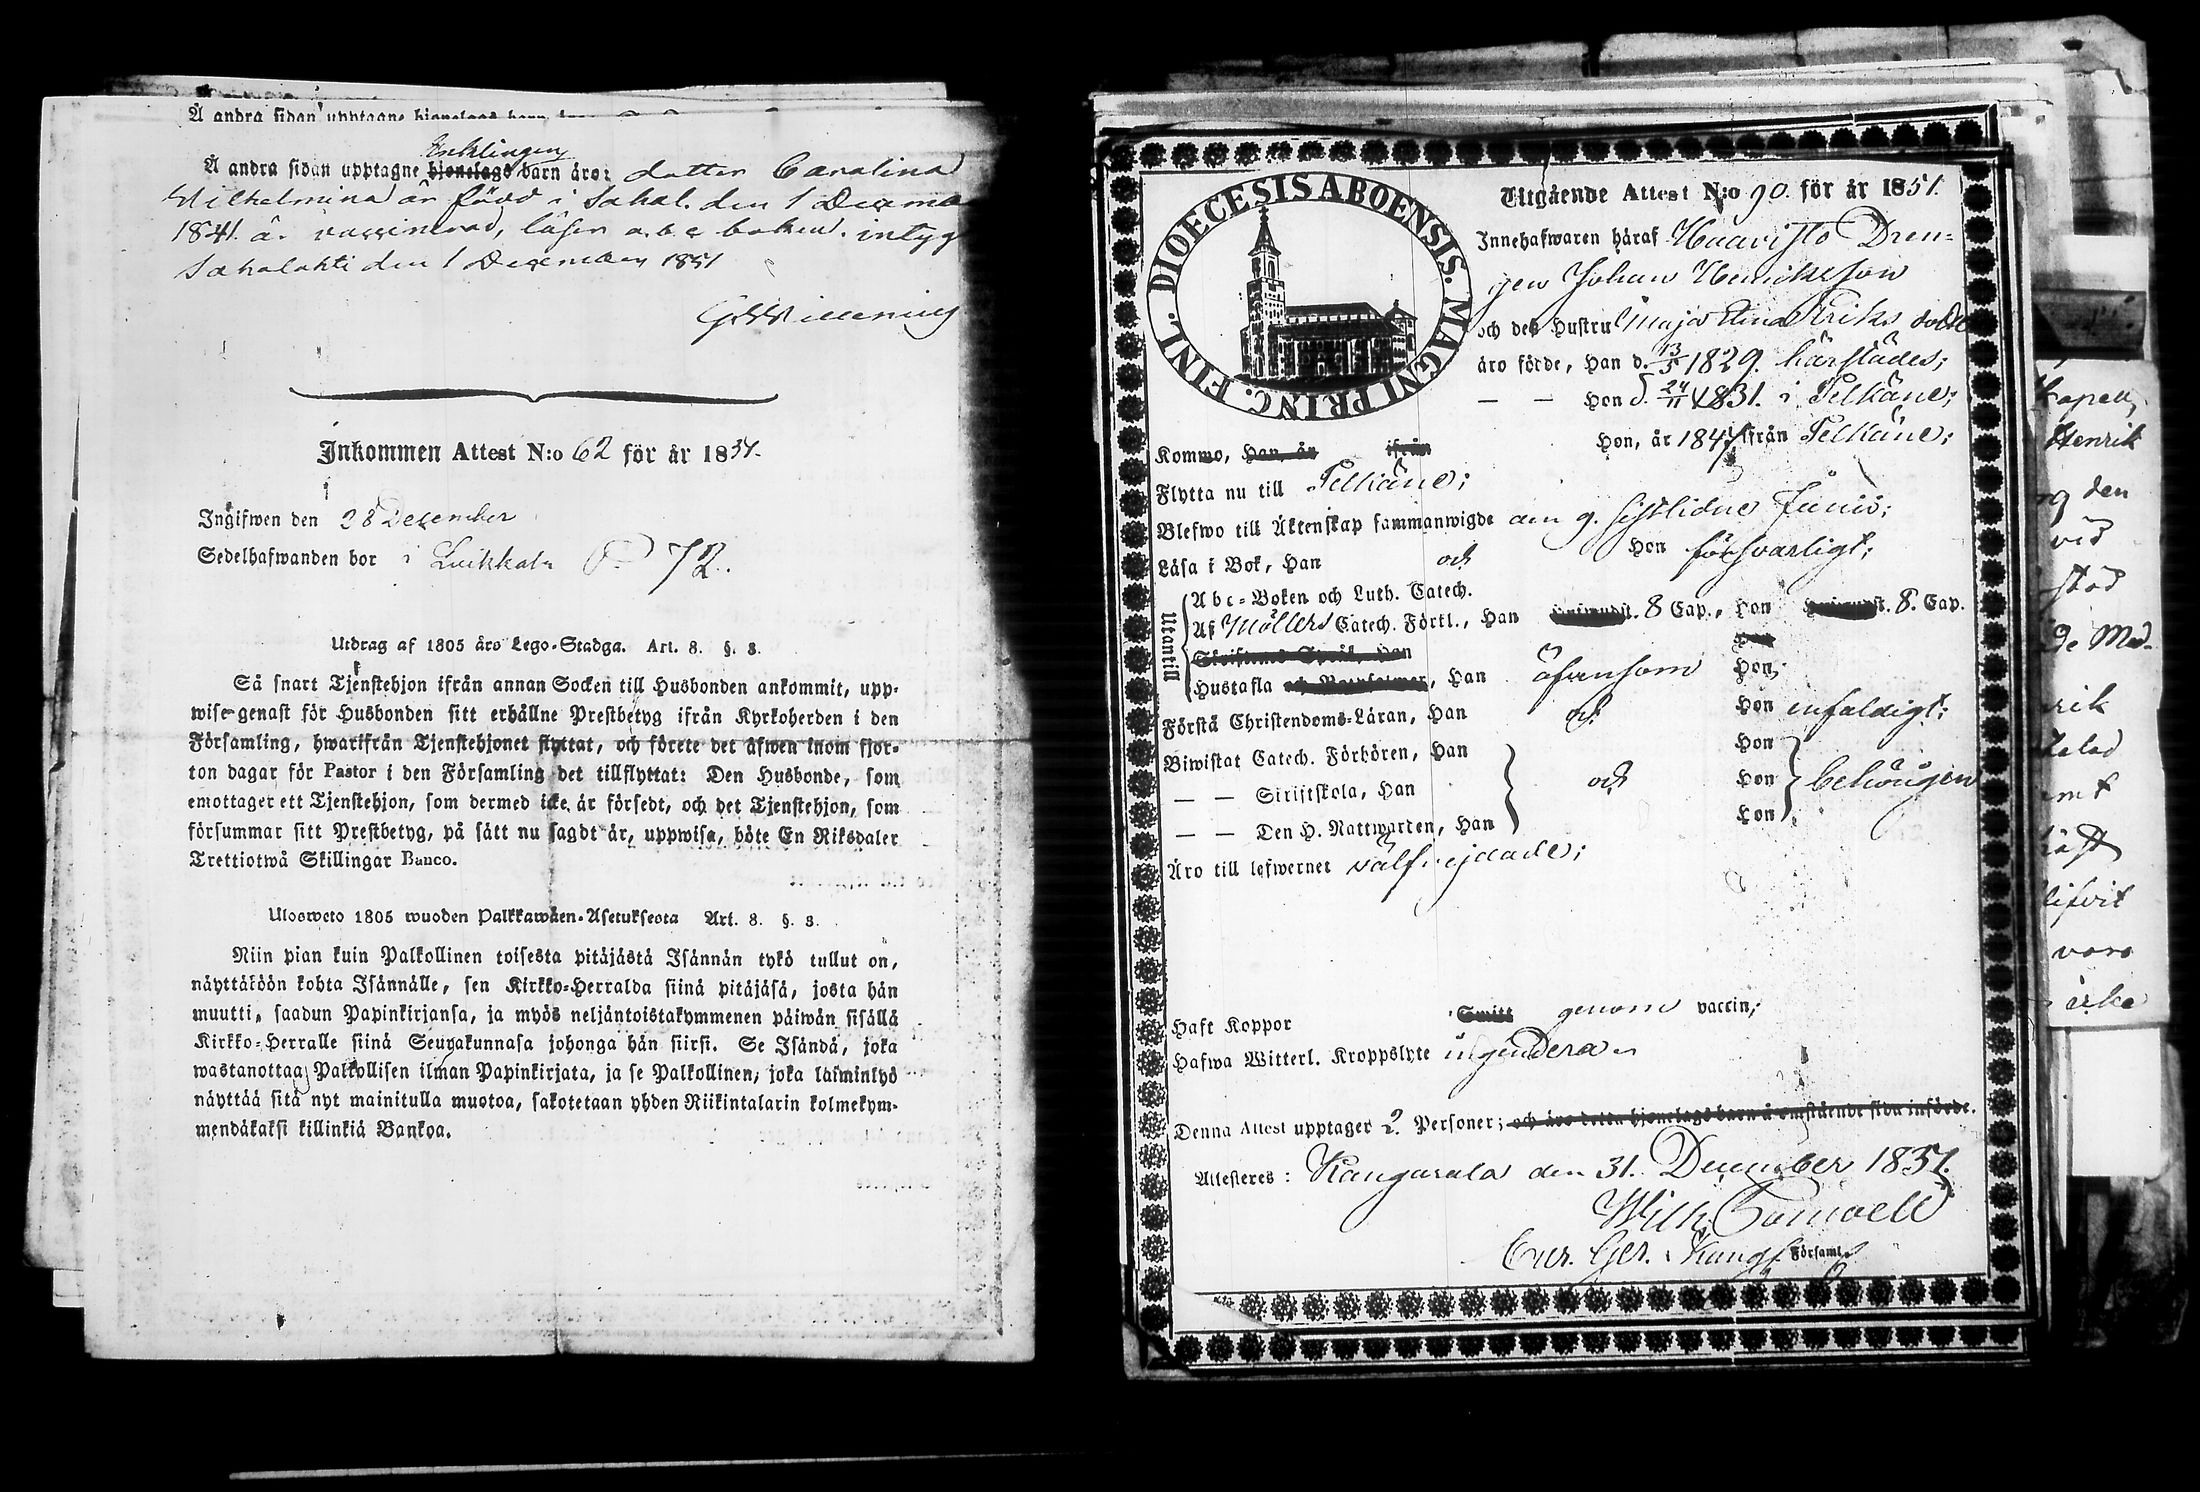 Å andra sidan upptagne hjonelags barn äro:
Enklingens
Å andra sidan upptagne hjonelags barn äro: dotter Carolina
Wilhelmina är född i Sahal. den 1 December
1841. är vaccinerad, läser a.b.c. boken. intyg
Sahalahti den 1 December 1851
Inkommen Attest N:o 62 för år 1851.
Ingifwen den 28 December
Sedelhafwanden bor i Luikkala P 72.
Utdrag af 1805 års Lego-Stadga. Art. 8. §. 3.
Så snart Tjenstehjon ifrån annan Socken till Husbonden ankommit, upp-
wise genast för Husbonden sitt erhållne Prestbetyg ifrån Kyrkoherden i den
Församling, hwarifrån Tjenstehjonet flyttat, och förete det äfwen inom fjor-
ton dagar för Pastor i den Församling det tillflyttat: Den Husbonde, som
emottager ett Tjenstehjon, som dermed icke är försedt, och det Tjenstehjon, som
försummar sitt Prestbetyg, på sätt nu sagdt är, uppwisa, böte En Riksdaler
Trettiotwå Skillingar Banco.
Ulosweto 1805 wuoden Palkkawäen-Asetuksesta Art. 8. §. 3.
Niin pian kuin Palkollinen toisesta pitäjästä Isännän tykö tullut on,
näyttäköön kohta Isännälle, sen Kirkko-Herralda siinä pitäjäsä, josta hän
muutti, saadun Papinkirjansa, ja myös neljäntoistakymmenen päiwän sisällä
Kirkko-Herralle siinä Seurakunnasa johonga hän siirsi. Se Isändä, joka
wastanottaa Palkollisen ilman Papinkirjata, ja se Palkollinen, joka laiminlyö
näyttää sitä nyt mainitulla muotoa, sakotetaan yhden Riikintalarin kolmekym-
mendäkaksi killinkiä Bankoa.
DIOECESIS ABOENSIS. MAGNI PRINC. FINL.
Utgående Attest N:o 90. för år 1851.
Innehafwaren häraf Huaristo Dren-
gen Johan Henriksson
och dess Hustru Maja Stina Eriks dotter
äro födde, Han d. 13/5 1829. härstädes;
— — Hon d. 24/11 1831. i Pelkäne;
Kommo, Han, år ifrån Hon, år 1847 ifrån Pelkäne;
Flytta nu till Pelkäne;
Blefwo till Äktenskap sammanwigde den 9. sistlidne Junii;
Läsa i Bok, Han och Hon försvarligt;
Utantill
Abc-Boken och Luth. Catech.
Af Möllers Catech. Förkl., Han 8 Cap., Hon 8. Cap.
Skriftenes Språk, Han Hon
Hustafla, Han äfvensom Hon;
Förstå Christendoms-Läran, Han och Hon enfaldigt;
Biwistat Catech. Förhören, Han Hon
— — Skriftskola, Han och Hon behörigen
— — Den H. Nattwarden, Han Hon
Äro till lefwernet välfrejdade;
Haft Koppor Smitt genom vaccin;
Hafwa Witterl. Kroppslyte ingendera
Denna Attest upptager 2 Personer; och äro detta hjonelags barn å omstående sida införde.
Attesteras: Kangasala den 31. December 1851.
Församl.